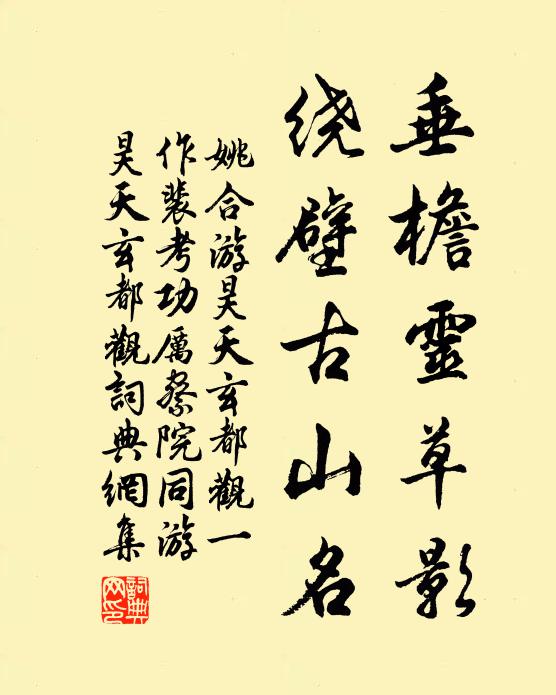 垂檐靈草影
绕壁古山名
姚合游昊天玄都觀一
作裴考功厲察院同游
昊天玄都觀詞典網集
詞典
网印